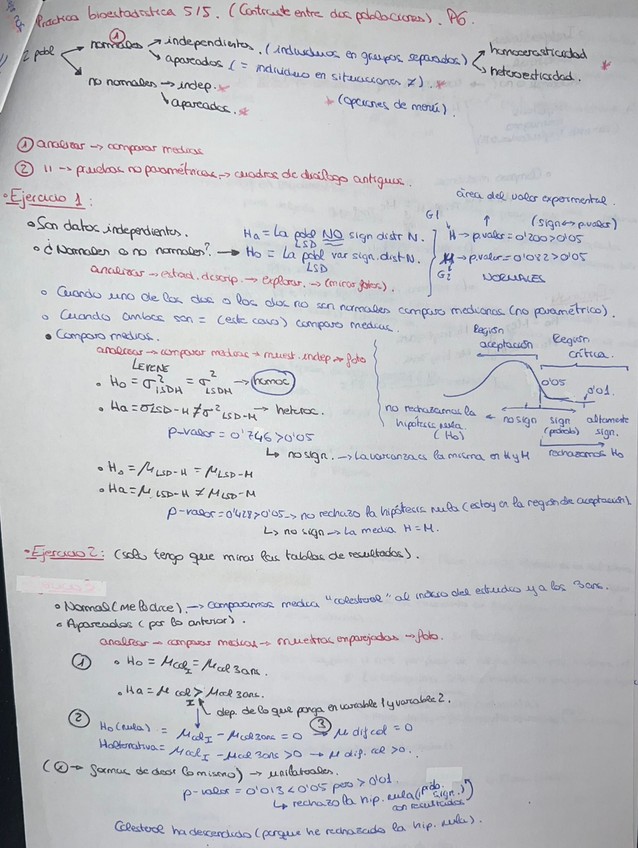 Práctica bioestadística 5/5. (Contraste entre dos poblaciones). P6.
2 pobl
normales ① → independientes. (individuos en grupos separados) → homocerasticidad *
→ apareados (= individuo en situaciones ≠). *
→ heterocticidad.
no normales → indep. *
→ apareados. *
* (opciones de menú).
① analizar → comparar medias
② 11 → pruebas no paramétricas → cuadros de diálogo antiguos.
• Ejercicio 1:
área del valor experimental.
• Son datos independientes.
Ha = La pobl NO sign distr N.
LSD
G1
↑ (sign ↔ p.valor)
H → p.valor = 0'200 > 0'05
• ¿Normales o no normales? → Ho = La pobl var sign. dist N.
LSD
M → p.valor = 0'082 > 0'05
G2
NORMALES
analizar → estad. descrip. → explorar. → (mirar fotos).
o Cuando uno de los dos o los dos no son normales comparo medianas (no paramétrico).
o Cuando ambos son = (este caso) comparo medias.
• Comparo medias.
analizar → comparar medias → muest. indep → foto
Región aceptación
Región crítica.
0'05
0'01.
no rechazamos la hipótesis nula (Ho)
← no sign
sign (probabl)
altamente sign.
rechazamos Ho
LEVENE
• Ho = σ² LSDH = σ² LSDM → homoc
• Ha = σ LSD-H ≠ σ² LSD-M → heteroc.
p-valor = 0'746 > 0'05
↳ no sign. → La varianza es la misma en H y M
• Ho = μ LSD-H = μ LSD-M
• Ha = μ LSD-H ≠ μ LSD-M
p-valor = 0'428 > 0'05 → no rechazo la hipótesis nula (estoy en la región de aceptación)
↳ no sign → La media H = M.
• Ejercicio 2: (solo tengo que mirar las tablas de resultados).
• Normal (me lo dice) → comparamos media "colestrool" al inicio del estudio y a los 3 ans.
• Apareados (por lo anterior).
analizar → comparar medias → muestras emparejadas → foto.
① • Ho = μ col I = μ col 3ans.
• Ha = μ col I > μ col 3ans.
dep. de lo que ponga en variable 1 y variable 2.
② Ho (nula) = μ col I - μ col 3ans = 0 ③ → μ dif col = 0
H alternativa = μ col I - μ col 3ans > 0 → μ dif. col > 0.
formas de decir lo mismo) → unilaterales.
p-valor = 0'013 < 0'05 pero > 0'01.
↳ rechazo la hip. nula (prob. sign.)
con resultados
Colestrool ha descendido (porque he rechazado la hip. nula).